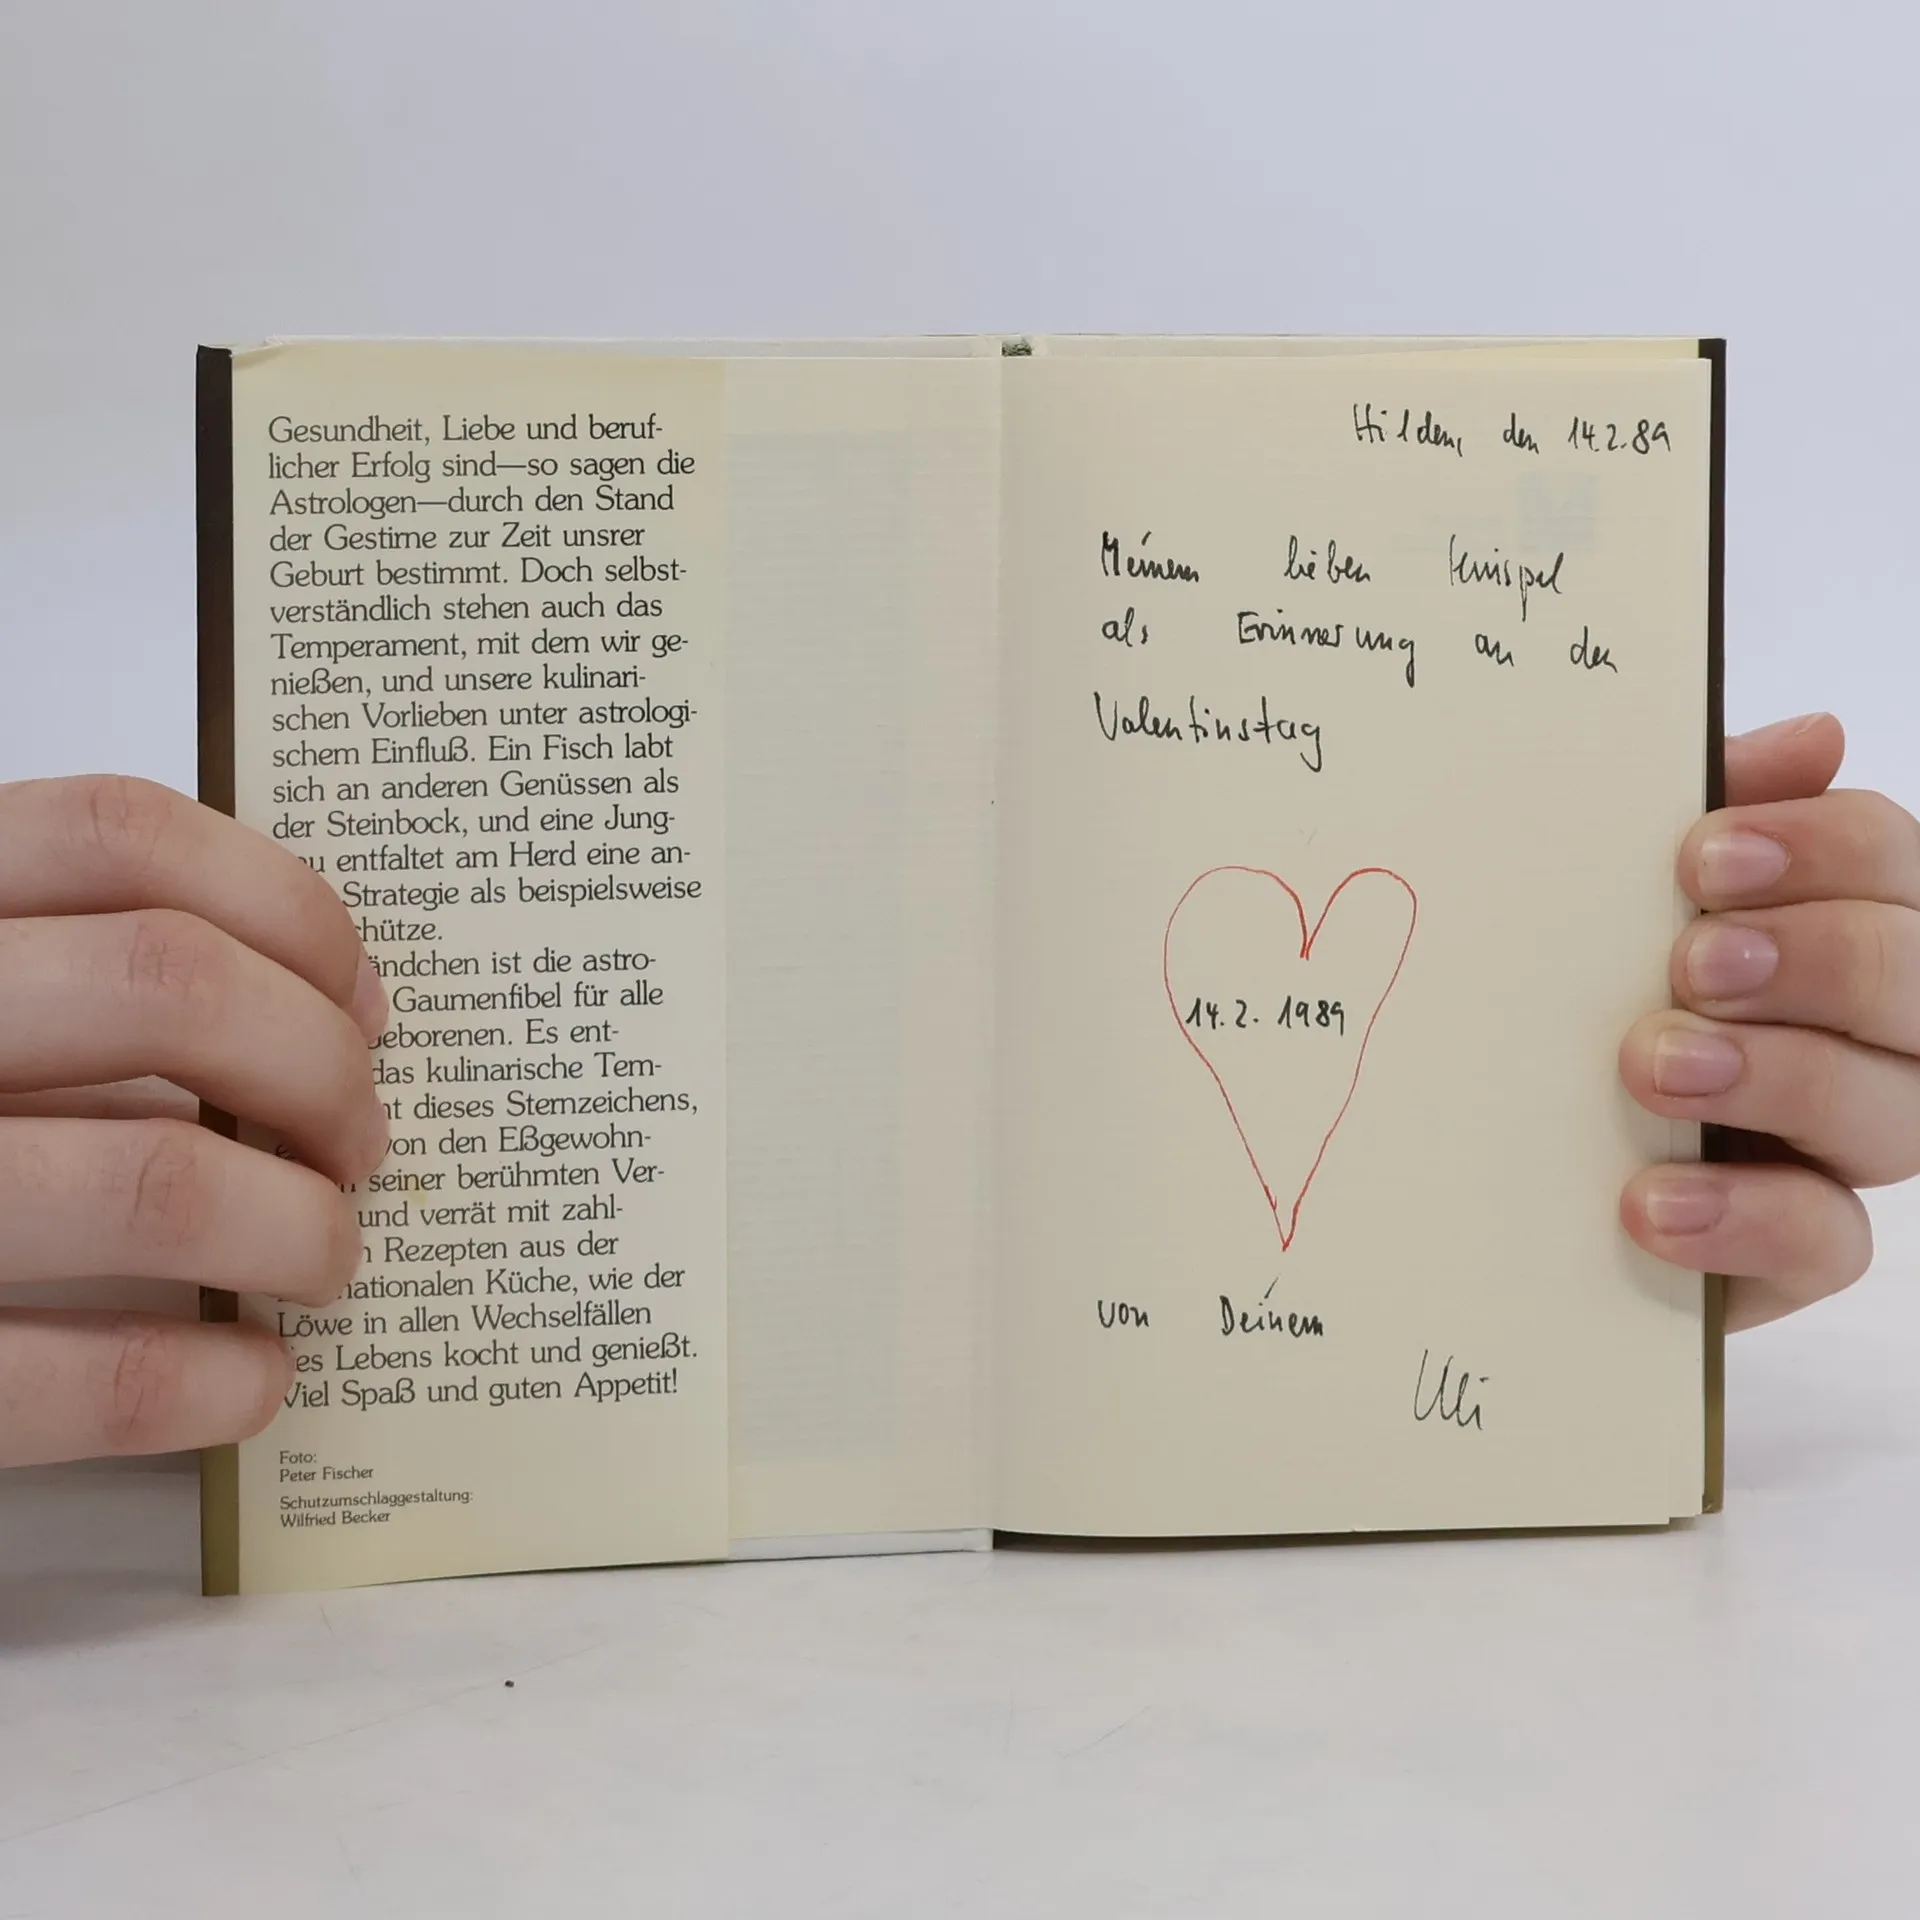 Gesundheit, Liebe und beruf-
licher Erfolg sind—so sagen die
Astrologen—durch den Stand
der Gestirne zur Zeit unsrer
Geburt bestimmt. Doch selbst-
verständlich stehen auch das
Temperament, mit dem wir ge-
nießen, und unsere kulinari-
schen Vorlieben unter astrologi-
schem Einfluß. Ein Fisch labt
sich an anderen Genüssen als
der Steinbock, und eine Jung-
entfaltet am Herd eine an-
Strategie als beispielsweise
hütze.
ändchen ist die astro-
Gaumenfibel für alle
eborenen. Es ent-
das kulinarische Tem-
nt dieses Sternzeichens,
von den Eßgewohn-
seiner berühmten Ver-
und verrät mit zahl-
n Rezepten aus der
nationalen Küche, wie der
Löwe in allen Wechselfällen
es Lebens kocht und genießt.
Viel Spaß und guten Appetit!
Foto:
Peter Fischer
Schutzumschlaggestaltung:
Wilfried Becker
Hilden, den 14.2.89
Meinem lieben Knispel
als Erinnerung an den
Valentinstag
14.2. 1989
von Deinem
Uli